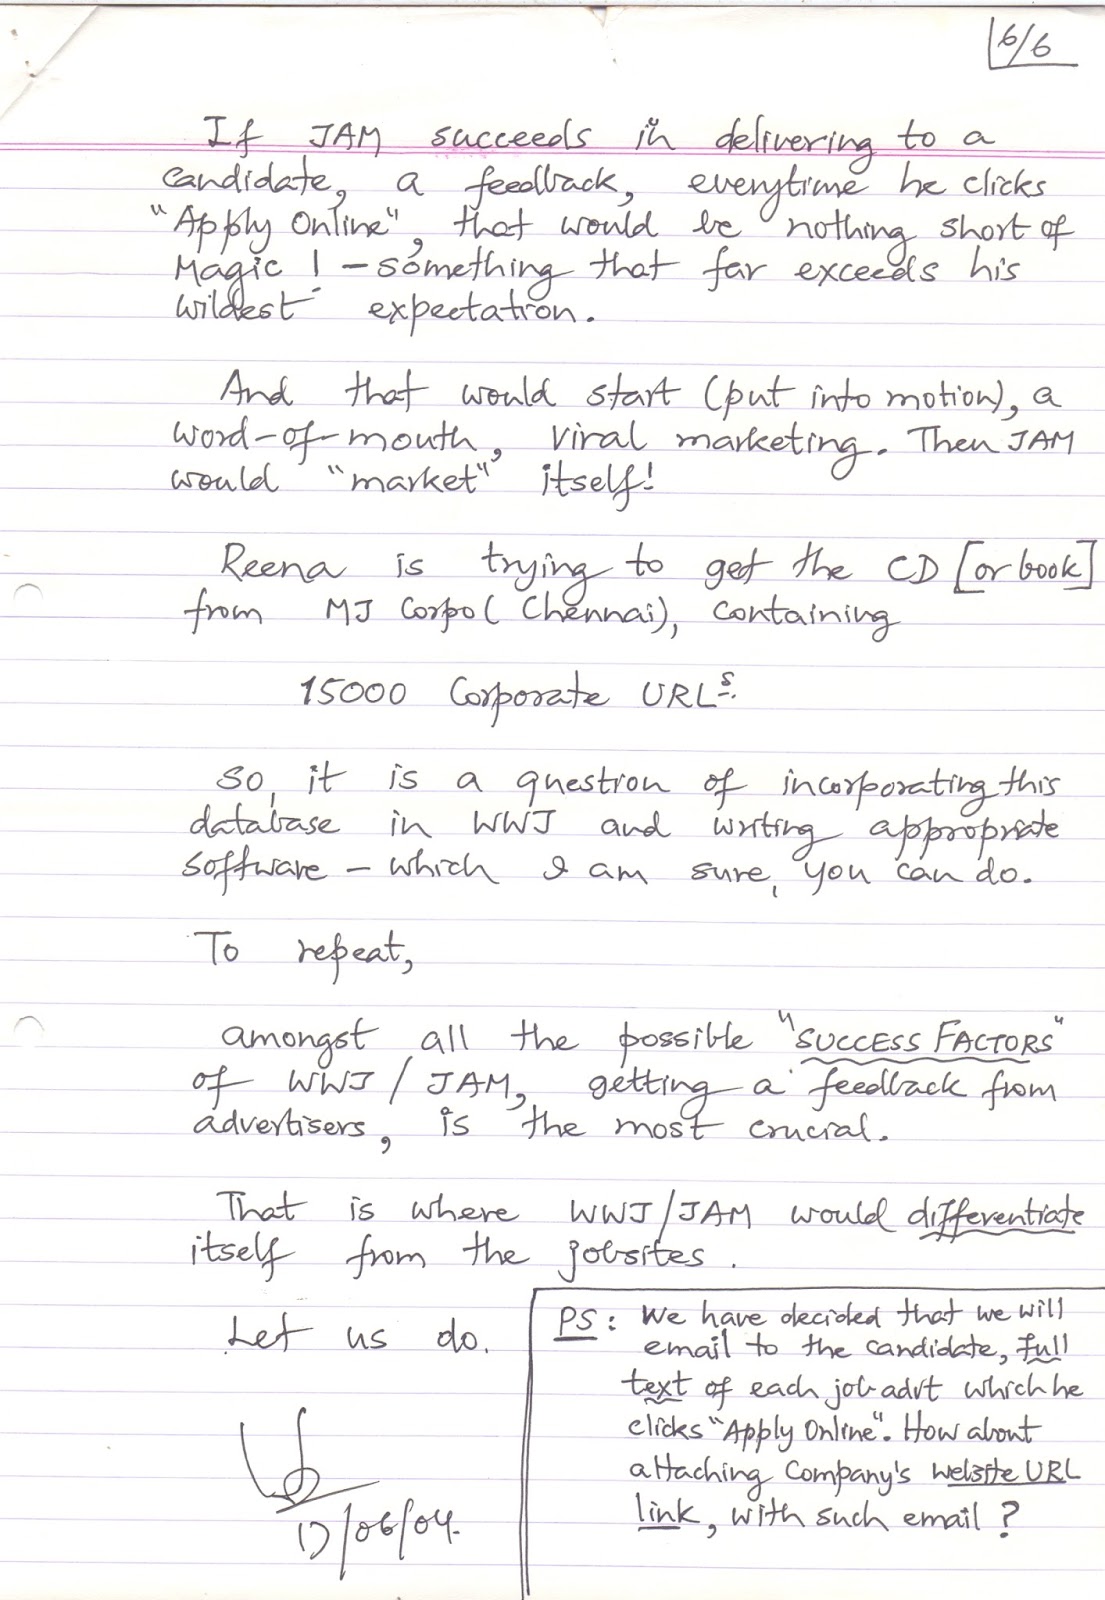 6/6
If JAM succeeds in delivering to a
candidate, a feedback, everytime he clicks
"Apply Online", that would be nothing short of
Magic! - something that far exceeds his
wildest expectation.
And that would start (put into motion), a
word-of-mouth, viral marketing. Then JAM
would "market" itself!
Reena is trying to get the CD [or book]
from MJ Corpo (Chennai), containing
15000 Corporate URLs.
So, it is a question of incorporating this
database in WWJ and writing appropriate
software - which I am sure, you can do.
To repeat,
amongst all the possible "SUCCESS FACTORS"
of WWJ / JAM, getting a feedback from
advertisers, is the most crucial.
That is where WWJ/JAM would differentiate
itself from the jobsites.
Let us do.
/06/04.
PS: We have decided that we will
email to the candidate, full
text of each job advt which he
clicks "Apply Online". How about
attaching Company's website URL
link, with such email?